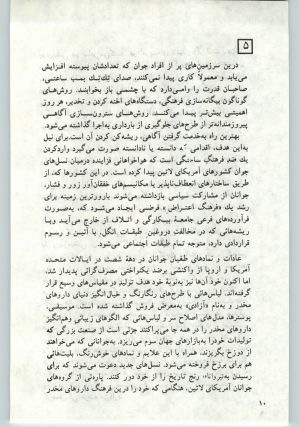 ۵
درین سرزمین‌های پر از افراد جوان که تعدادشان پیوسته افزایش
می‌یابد و معمولاً کاری پیدا نمی‌کنند، صدای تیک‌تیک بمب ساعتی،
صاحبان قدرت را وامی‌دارد که با چشمی باز بخوابند. روش‌های
گوناگون بیگانه‌سازی فرهنگی، دستگاه‌های اخته کردن و تخدیر، هر روز
اهمیتی بیش‌تر پیدا می‌کنند. روش‌های سترون‌سازی آگاهی
پیروزمندانه‌تر از طرح‌های جلوگیری از بارداری به‌اجرا گذاشته می‌شود.
بهترین راه به‌خدمت گرفتن آگاهی، ریشه‌کن کردن آن است. برای نیل
به‌این هدف، اقدامی که دانسته یا نادانسته صورت می‌گیرد واردکردن
یک ضد فرهنگ ساختگی است که هواخواهانی فزاینده درمیان نسل‌های
جوان کشورهای آمریکای لاتین پیدا کرده است. در این کشورها که، از
طریق ساختارهای انعطاف‌ناپذیر یا مکانیسم‌های خفقان‌آور زور و فشار،
جوانان از مشارکت سیاسی بازداشته می‌شوند بارورترین زمینه برای
رشد یک «فرهنگ اعتراض» فرضی ایجاد می‌شود، که به‌صورت
فرآورده‌های فرعی جامعهٔ بیکارگی و اتلاف از خارج می‌آید ویا
ریشه‌هائی که در مخالفت دروغین طبقات انگل، با آئین و رسوم
قراردادی دارد، متوجه تمام طبقات اجتماعی می‌شود.
عادات و نمادهای طغیان جوانان در دههٔ شصت در ایالات متحده
آمریکا و اروپا از واکنشی برضد یکنواختی مصرف‌گرائی پدیدار شد،
اما اکنون خود آن‌ها نیز به‌نوبهٔ خود هدف تولید در مقیاس وسیع قرار
گرفته‌اند. لباس‌هائی با طرح‌های رنگارنگ و خیال‌انگیز دنیای داروهای
مخدر و به‌نام «آزادی» به‌معرض فروش گذاشته شده است. موسیقی،
پوسترها، مدل‌های اصلاح سر و لباس‌هائی که الگوهای زیبائی وهم‌انگیز
داروهای مخدر را در همه جا می‌پراکنند جزئی است از صنعت بزرگی که
تولیدات خود را به‌بازارهای جهان سوم می‌ریزد. به‌جوانانی که می‌خواهند
از دوزخ بگریزند، همراه با این علایم و نمادهای خوش‌رنگ، بلیت‌هائی
هم برای برزخ فروخته می‌شود. نسل‌های جدید دعوت می‌شوند که برای
رسیدن به‌نیروانا، رنج تاریخ را از خود دور کنند. پاره‌ئی از گروه‌های
جوانان آمریکای لاتین، هنگامی که خود را درین فرهنگ داروهای مخدر
۱۰